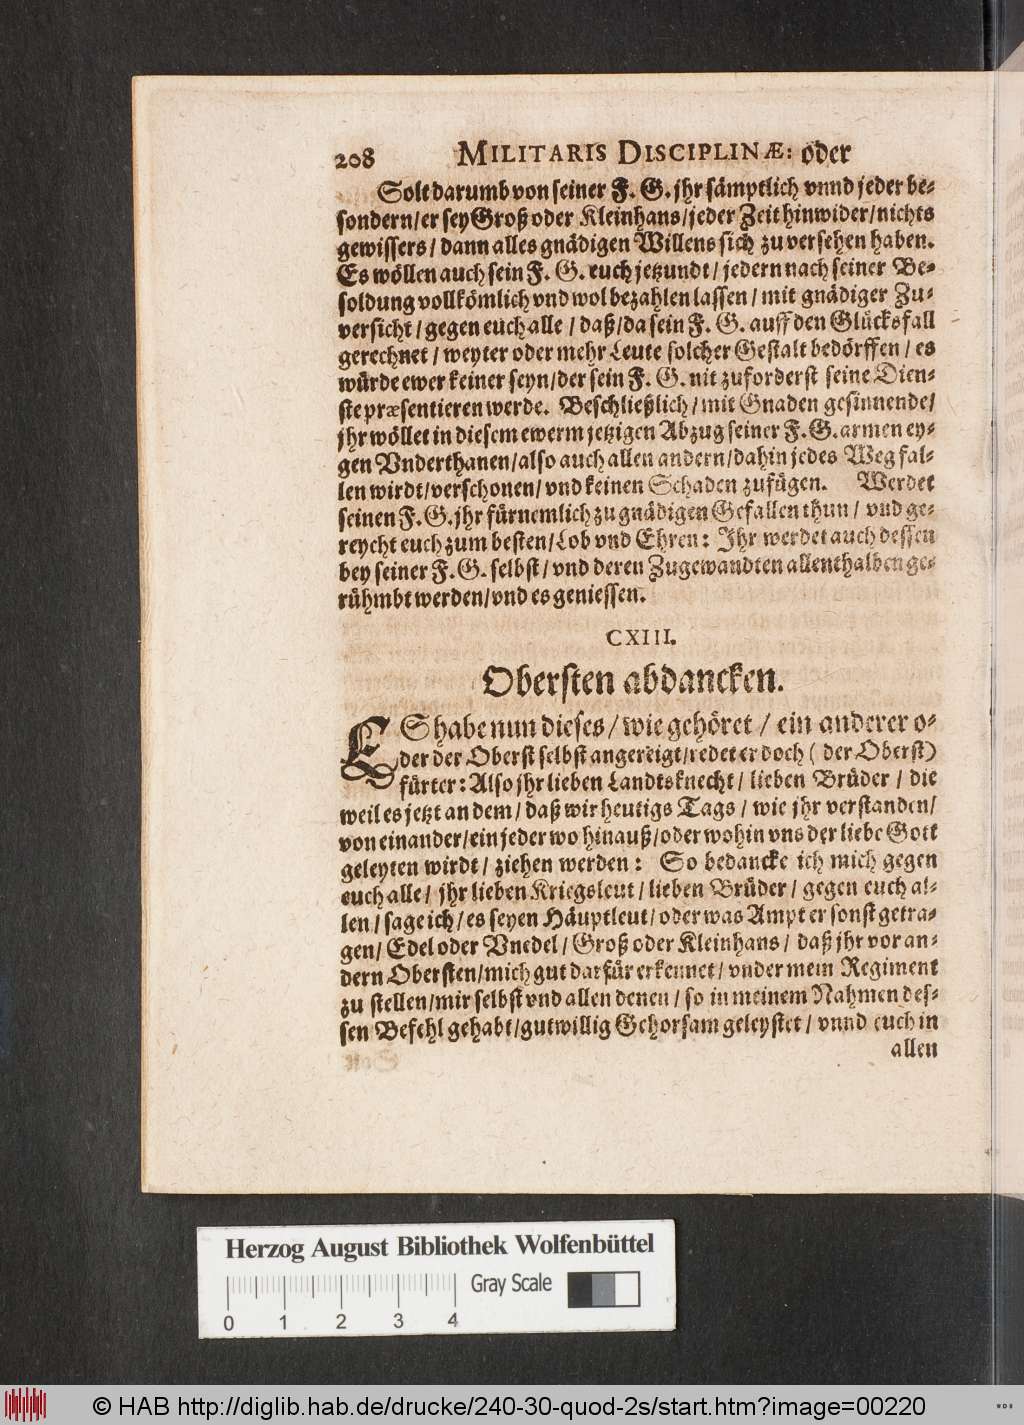 208 MILITARIS DISCIPLINÆ: oder
Solt darumb von seiner F. G. jhr sämptlich vnnd jeder be-
sondern/er sey Groß oder Kleinhans/jeder Zeit hinwider/nichts
gewissers/dann alles gnädigen Willens sich zu versehen haben.
Es wöllen auch sein F. G. euch jetzundt/jedern nach seiner Be-
soldung vollkömlich vnd wol bezahlen lassen/mit gnädiger Zu-
versicht/gegen euch alle/daß/da sein F. G. auff den Glücksfall
gerechnet/weyter oder mehr Leute solcher Gestalt bedörffen/es
würde ewer keiner seyn/der sein F. G. nit zuforderst seine Dien-
ste præsentieren werde. Beschließlich/mit Gnaden gesinnende/
jhr wöllet in diesem ewerm jetzigen Abzug seiner F. G. armen ey-
gen Vnderthanen/also auch allen andern/dahin jedes Weg fal-
len wirdt/verschonen/vnd keinen Schaden zufügen. Werdet
seinen F. G. jhr fürnemlich zu gnädigen Gefallen thun/vnd ge-
reycht euch zum besten/Lob vnd Ehren: Jhr werdet auch dessen
bey seiner F. G. selbst/vnd deren Zugewandten allenthalben ge-
rühmbt werden/vnd es geniessen.
CXIII.
Obersten abdancken.
ES habe nun dieses/wie gehöret/ein anderer o-
der der Oberst selbst angezeigt/redet er doch (der Oberst)
fürter: Also jhr lieben Landtsknecht/lieben Brüder/die
weil es jetzt an dem/daß wir heutigs Tags/wie jhr verstanden/
von einander/ein jeder wo hinauß/oder wohin vns der liebe Gott
geleyten wirdt/ziehen werden: So bedancke ich mich gegen
euch alle/jhr lieben Kriegsleut/lieben Brüder/gegen euch al-
len/sage ich/es seyen Häuptleut/oder was Ampt er sonst getra-
gen/Edel oder Vnedel/Groß oder Kleinhans/daß jhr vor an-
dern Obersten/mich gut darfür erkennet/vnder mein Regiment
zu stellen/mir selbst vnd allen denen/so in meinem Nahmen des-
sen Befehl gehabt/gutwillig Gehorsam geleystet/vnnd euch in
allen
Herzog August Bibliothek Wolfenbüttel
Gray Scale
0 1 2 3 4
© HAB http://diglib.hab.de/drucke/240-30-quod-2s/start.htm?image=00220